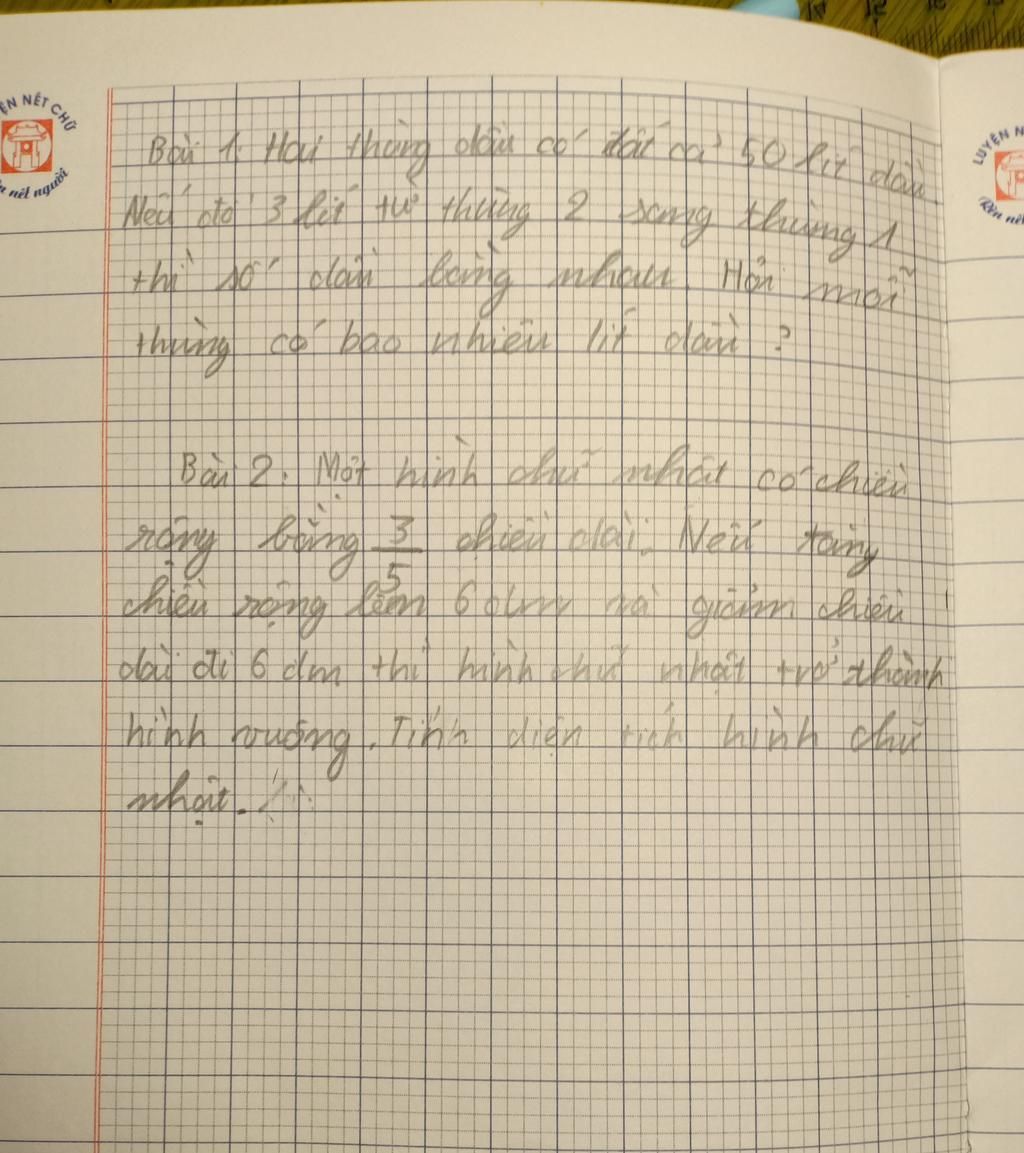 ỆN NẾT CHỮ
n nết người
LUYỆN N
Rèn nết
Bài 1: Hai thùng dầu có tất cả 50 lít dầu
Nếu đổ 3 lít từ thùng 2 sang thùng 1
thì số dầu bằng nhau. Hỏi mỗi
thùng có bao nhiêu lít dầu ?
Bài 2: Một hình chữ nhật có chiều
rộng bằng 3/5 chiều dài. Nếu tăng
chiều rộng lên 6 dm và giảm chiều
dài đi 6 dm thì hình chữ nhật trở thành
hình vuông. Tính diện tích hình chữ
nhật.